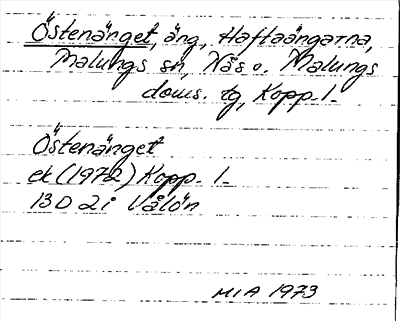 Östenänget, äng, Haftaängarna,
Malungs sn, Nås o. Malungs
doms. tg, Kopp. l.
Östenänget
ek (1972) Kopp. l.
13D 2i Vålön
MIA 1973